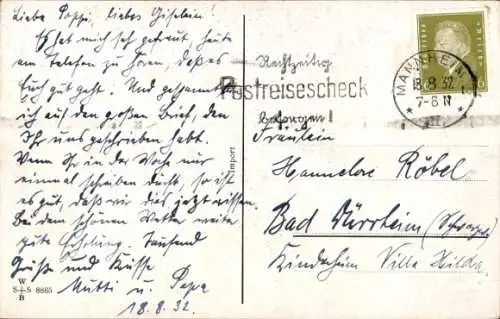 Liebe Poppi, liebes Giselein!
Es hat mich sehr gefreut, heute
am Telefon zu hören, daß es
Euch gut geht. Und gespannt bin
ich auf den großen Brief, den
Ihr uns geschrieben habt.
Wenn Ihr in der Woche nur
einmal schreiben dürft, so ist
es gut, daß wir das jetzt wissen.
Bei dem schönen Wetter weiter
gute Erholung. Tausend
Grüße und Küsse
Mutti u. Papa
18.8.32.
W
S+S 8865
B
Import
Rechtzeitig
Postreisescheck
besorgen!
MANNHEIM
18.8.32.
7-8 N
Fräulein
Hannelore Röbel
Bad Dürrheim (Schwarzw.)
Kinderheim Villa Hilda